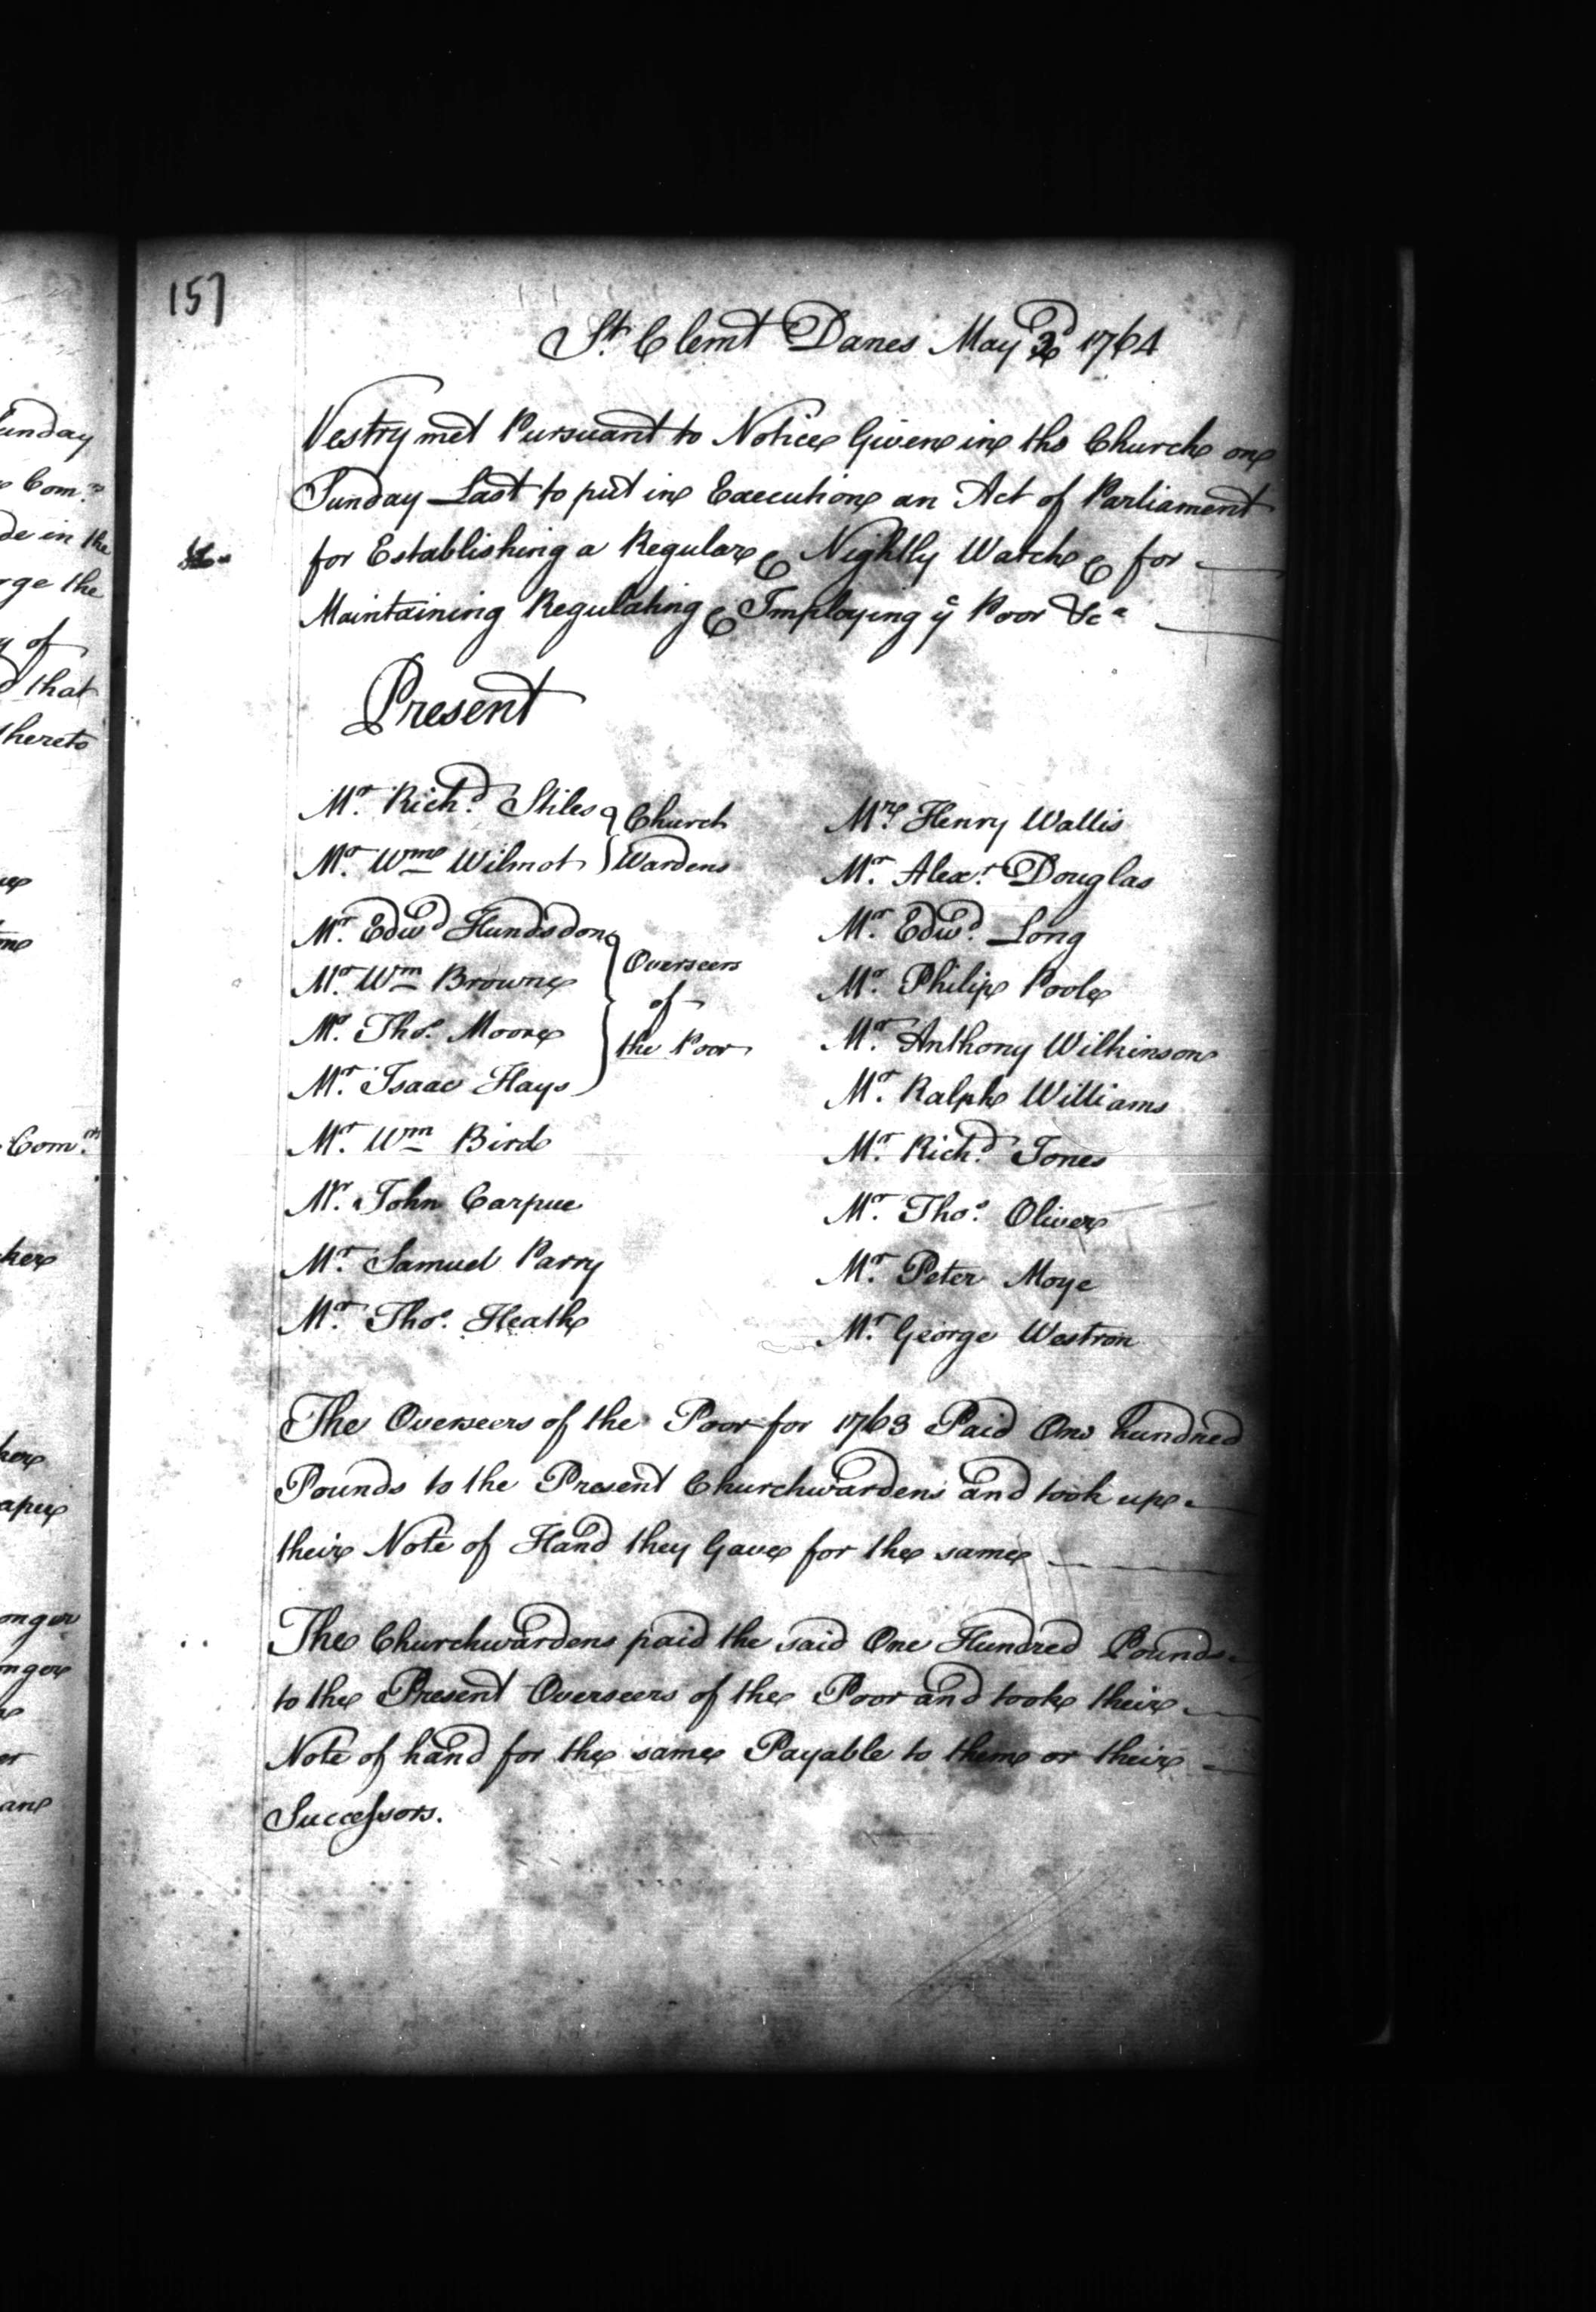 157
St. Clemt Danes May 3d 1764
Vestry met Pursuant to Notice Given in the Church on
Sunday Last to put in Execution an Act of Parliament
for Establishing a Regular & Nightly Watch & for
Maintaining Regulating & Imploying ye Poor &ca
Present
Mr. Richd. Stiles } Church
Mr. Wm Wilmot } Wardens
Mr. Edwd Hundsdon
Mr. Wm Brown
Mr. Thos. Moore
Mr. Isaac Hays
} Overseers
of
the Poor
Mr. Wm Bird
Mr. John Carpue
Mr. Samuel Parry
Mr. Thos. Heath
Mr. Henry Wallis
Mr. Alexr. Douglas
Mr. Edwd. Long
Mr. Philip Poole
Mr. Anthony Wilkinson
Mr. Ralph Williams
Mr. Richd. Jones
Mr. Thos. Oliver
Mr. Peter Moye
Mr. George Westron
The Overseers of the Poor for 1763 Paid One hundred
Pounds to the Present Churchwardens and took up
their Note of Hand they Gave for the same
The Churchwardens paid the said One Hundred Pounds
to the Present Overseers of the Poor and took their
Note of hand for the same Payable to them or their
Successors.